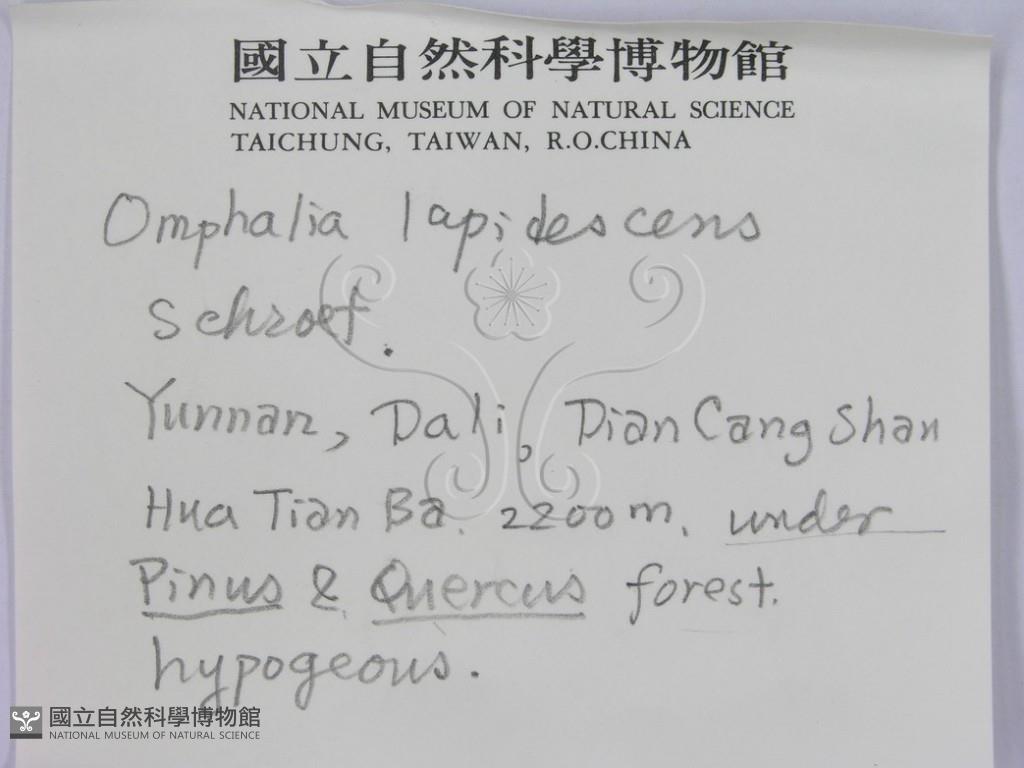 國立自然科學博物館
NATIONAL MUSEUM OF NATURAL SCIENCE
TAICHUNG, TAIWAN, R.O.CHINA
Omphalia lapidescens
schroet.
Yunnan, Dali, Dian Cang Shan
Hua Tian Ba. 2200m. under
Pinus & Quercus forest.
hypogeous.
國立自然科學博物館
NATIONAL MUSEUM OF NATURAL SCIENCE